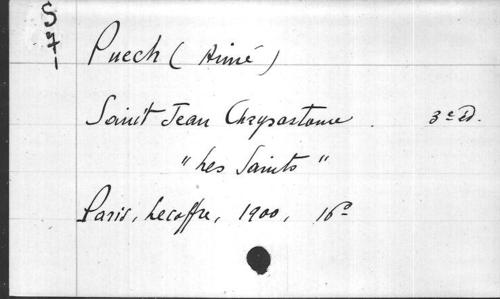 S
71
Puech (Aimé)
Saint Jean Chrysostome. 3e Ed.
"Les Saints"
Paris, Lecoffre, 1900, 16°